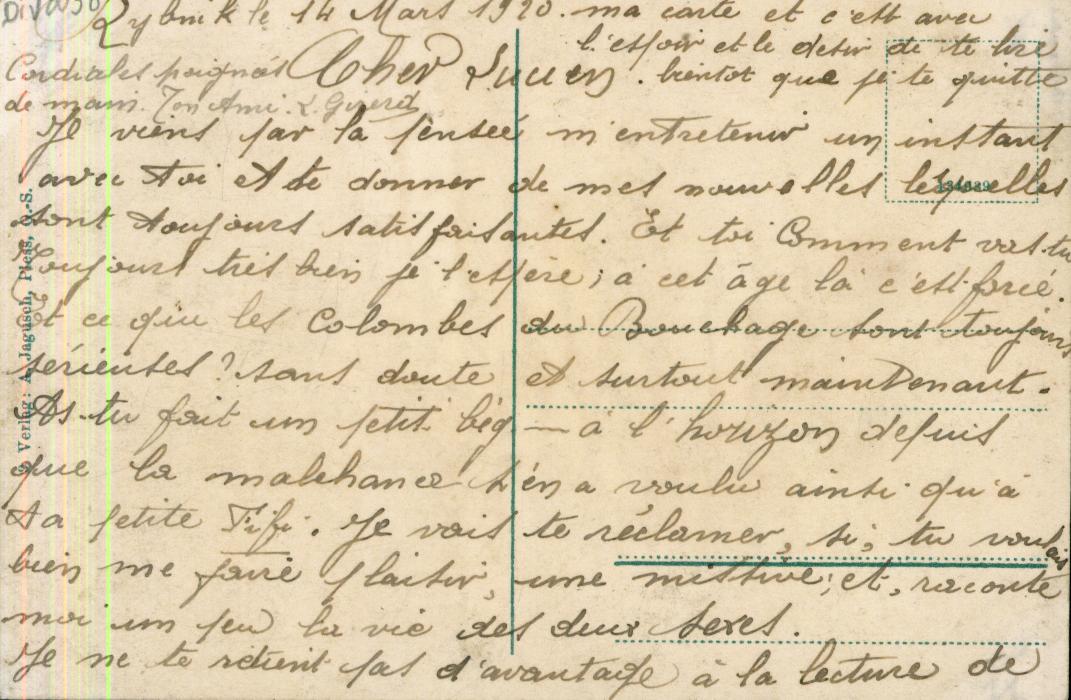 Divers
Rybnik le 14 Mars 1920.
Cher Lucien.
Je viens par la pensée m'entretenir un instant
avec toi et te donner de mes nouvelles lesquelles
sont toujours satisfaisantes. Et toi Comment vas-tu
Toujours très bien je l'espère; à cet âge là c'est forcé.
Et ce que les Colombes du Bouchage sont toujours
sérieuses? sans doute et surtout maintenant.
As-tu fait un petit bég — à l'horizon depuis
que la malchance t'en a voulu ainsi qu'à
ta petite Fifi. Je vais te réclamer, si, tu voulais
bien me faire plaisir, une missive; et, raconte
moi un peu la vie des deux sexes.
Je ne te retient pas d'avantage à la lecture de
ma carte et c'est avec
l'espoir et le désir de te lire
bientot que je te quitte
Cordiales poignées
de main. Ton Ami. L.
Verlag: A. Jagusch, Pless, O.-S.